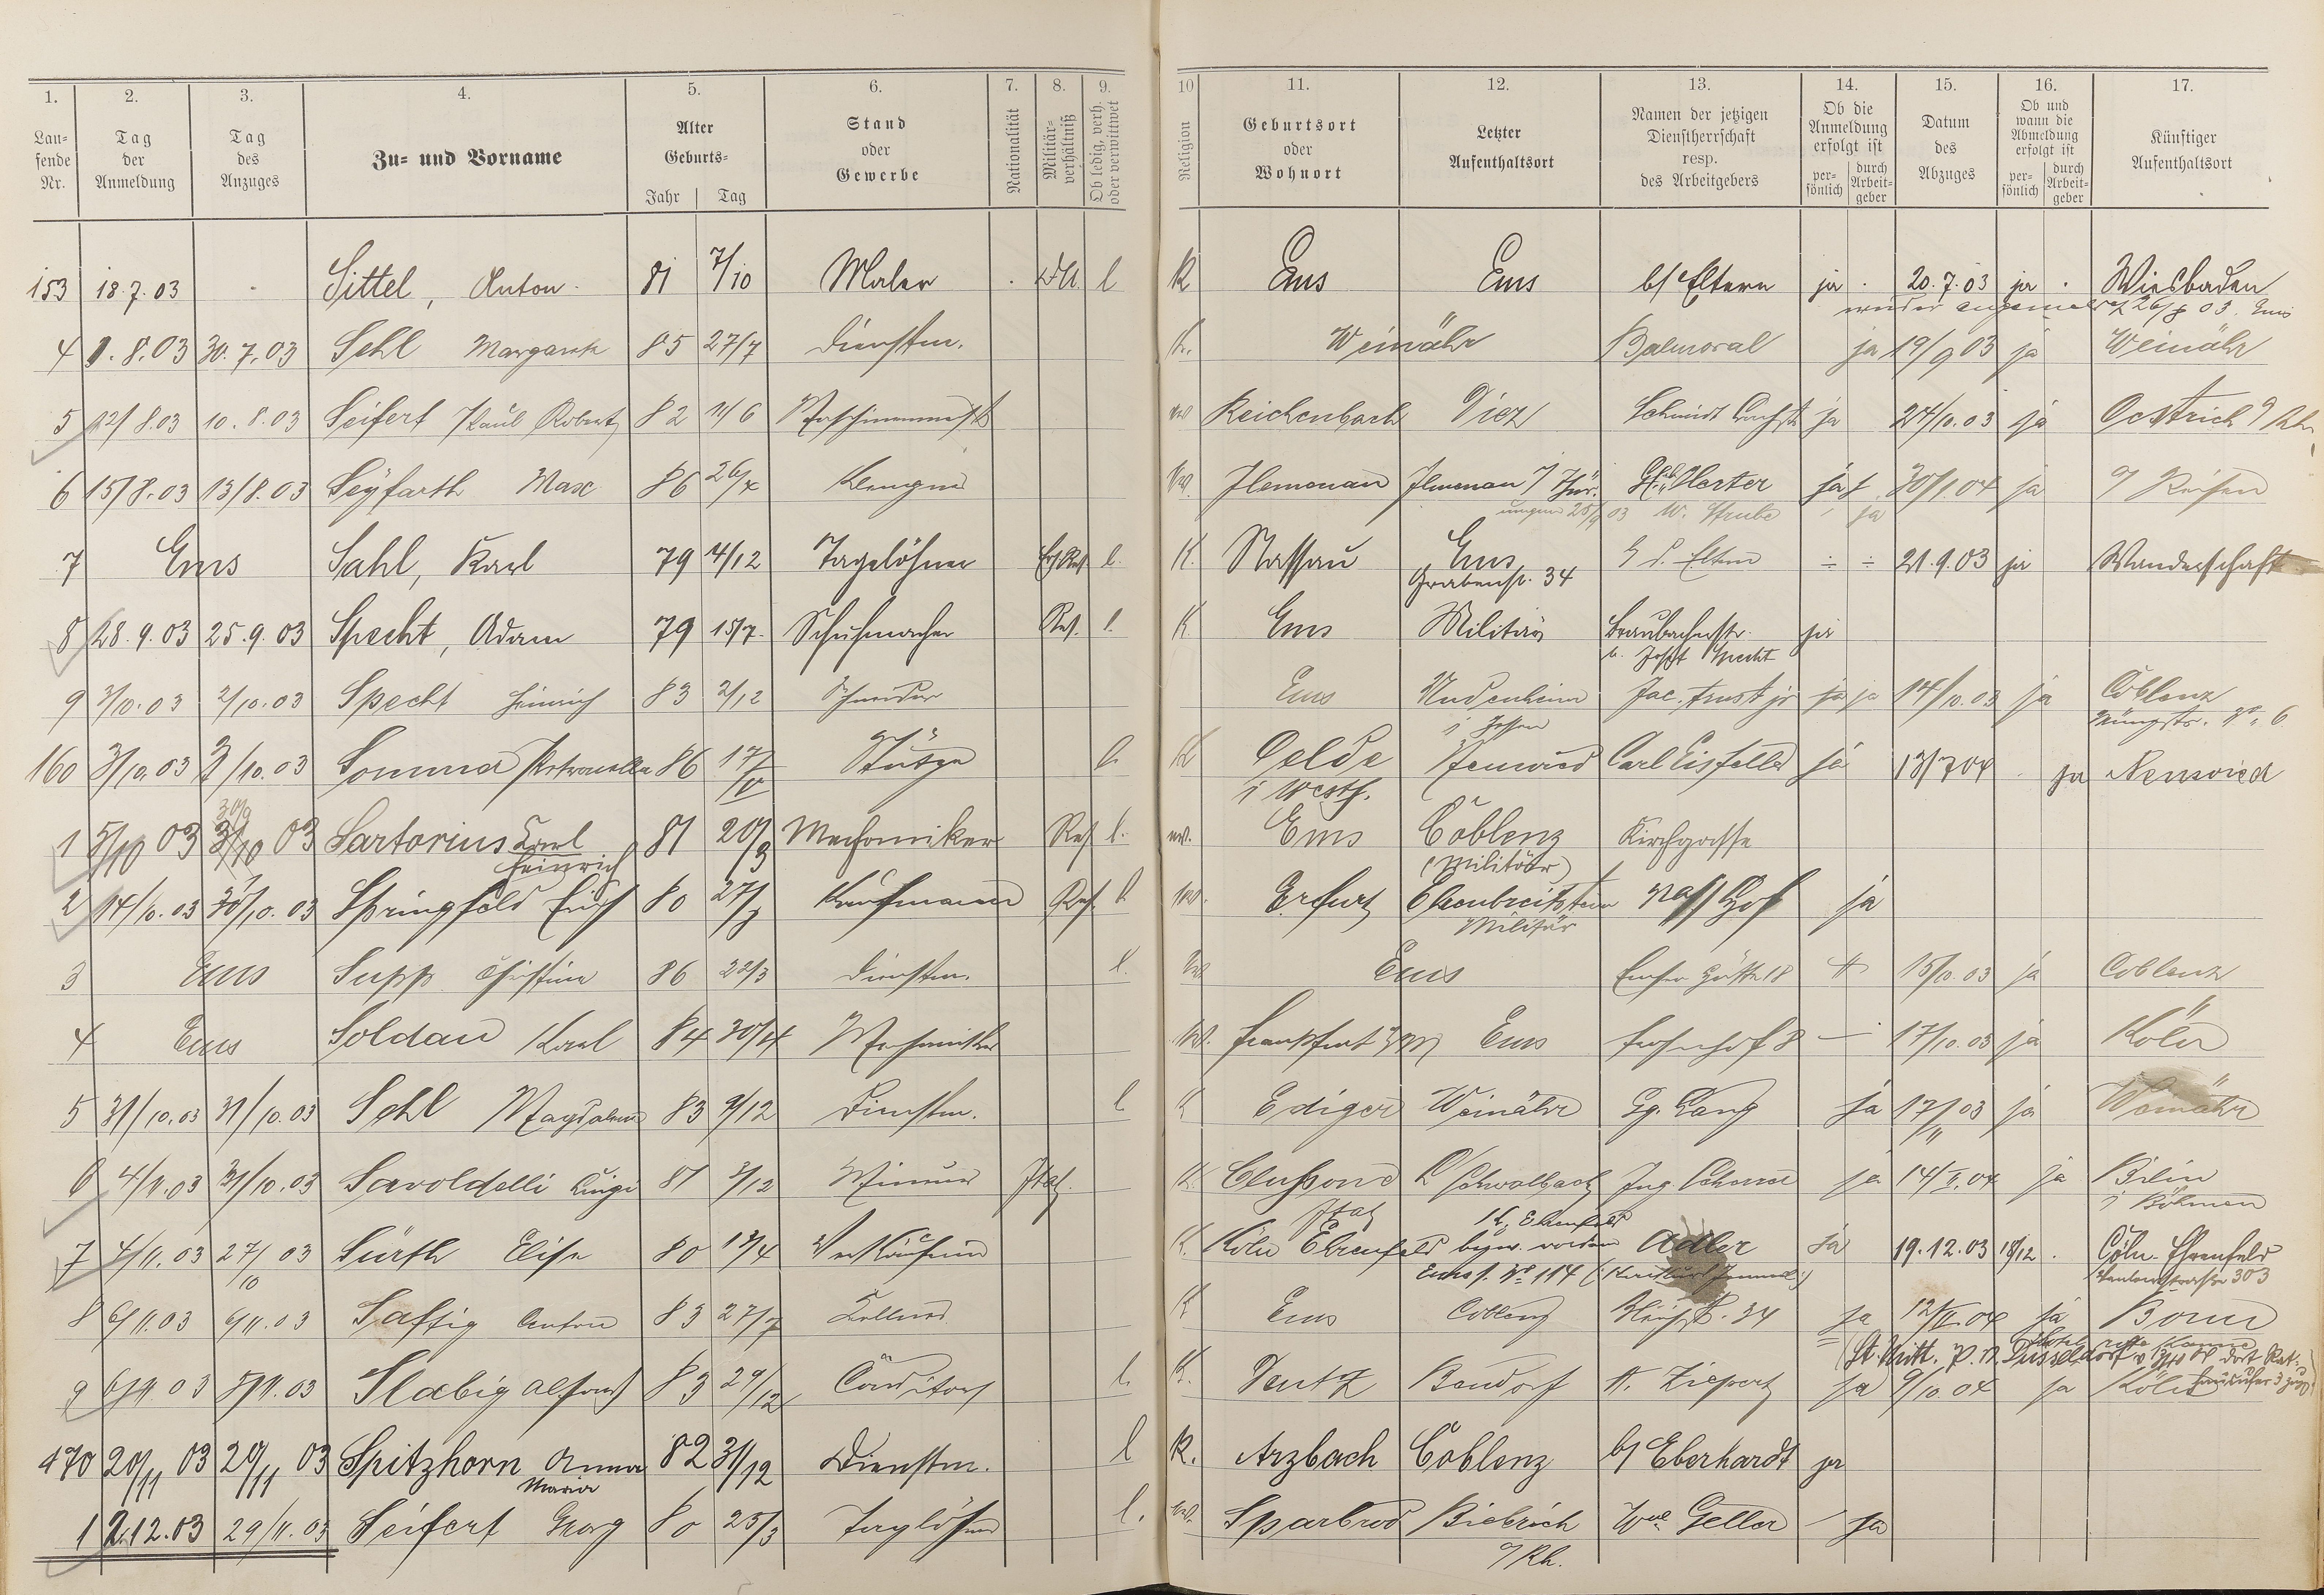 1. 2. 3. 4. 5. 6. 7. 8. 9. 10 11. 12. 13. 14. 15. 16. 17.
Lau-
fende
Nr.
Tag
der
Anmeldung
Tag
des
Anzuges
Zu- und Vorname
Alter
Geburts-
Jahr | Tag
Stand
oder
Gewerbe
Nationalität
Militär-
verhältniß
Ob ledig, verh.
oder verwittwet
Religion
Geburtsort
oder
Wohnort
Letzter
Aufenthaltsort
Namen der jetzigen
Dienstherrschaft
resp.
des Arbeitgebers
Ob die
Anmeldung
erfolgt ist
per-
sönlich
durch
Arbeit-
geber
Datum
des
Abzuges
Ob und
wann die
Abmeldung
erfolgt ist
per-
sönlich
durch
Arbeit-
geber
Künftiger
Aufenthaltsort
153 18.7.03 Sittel, Anton 81 7/10 Maler l K Ems Ems b/ Eltern ja 20.7.03 ja Wiesbaden
wieder angemeldet 26/8 03. Ems
4 1.8.03 30.7.03 Sehl Margareta 85 27/7 Dienstm. K. Weinähr Balmoral ja 19/9 03 ja Weinähr
5 12/8.03 10.8.03 Seifert Paul Robert 82 11/6 ev Reichenbach Diez Schmidt ja 24/10.03 ja Oestrich
6 15/8.03 13/8.03 Seyfarth Max 86 26/X ev. Ilmenau Ilmenau i/ Thür. Harter ja 30/1.04 ja a/ Reisen
25/9 03 W. Strube ja
7 Ems Sahl, Karl 79 4/12 Tagelöhner l. K. Nassau Ems b. d. Eltern ÷ ÷ 21.9.03 ja Wanderschaft
Grabenstr. 34
8 28.9.03 25.9.03 Specht, Adam 79 15/7. Schuhmacher Res. l. K Ems Militär Braubacherstr. ja
b. Josef Specht
9 3/10.03 2/10.03 Specht Heinrich 83 2/12 Schneider Ems Jac. Faust jr ja ja 14/10.03 ja Coblenz
i Hessen No. 6
160 3/10.03 2/10.03 Somma Petronella 86 17/IV Stütze l. K Oelde Neuwied Carl Eisfeller ja 13/7 04 ja Neuwied
i Westf.
1 5/10 03 3/10 03 Sartorius Karl 81 20/3 Mechaniker Res l. ev. Ems Coblenz Kirchgasse
30/9
Heinrich (Militär)
2 14/10.03 Springfeld Erich 80 Kaufmann Res. l ev. Erfurt Ehrenbreitstein Nass Hof ja
Militär
3 Ems Supp Christine 86 22/3 Dienstm. l. Ems Emser Hütte 18 15/10.03 ja Coblenz
4 Ems Soldan Karl 84 30/4 Mechaniker ev. Frankfurt a/M Ems Frohnhof 8 — 17/10.03 ja Köln
5 31/10.03 31/10.03 Sehl Magdalena 83 9/12 Dienstm. l K Ediger Weinähr Gg. Lang ja 17/11 03 ja Weinähr
6 4/11.03 31/10.03 Savoldelli Luigi 81 3/12 Mineur Ital. K. Clusone L/Schwalbach ja 14/II.04 ja Bilin
Ital i Böhmen
7 4/11.03 27/10 03 Sürth Elise 80 13/4 Verkäuferin K. Köln Ehrenfeld bezw. vordem Adler ja 19.12.03 18/12. Cöln-Ehrenfeld
Emsf. No. 114 303
8 6/11.03 6/11.03 Saftig Anton 83 27/7 Kellner K Ems Coblenz 34 ja 12/II.04 ja Bonn
9 6/11 03 5/11.03 Slabig Alfons 83 29/12 Conditor l. K. Deutz Bendorf A. Ziepert ja 9/10.04 ja Köln
170 20/11 03 20/11 03 Spitzhorn Anna 82 31/12 Dienstm. l K. Arzbach Coblenz b/ Eberhardt ja
Maria
1 2.12.03 29/11.03 Seifert Georg 80 25/3 Taglöhner l. ev. Sparbrod Biebrich Wwe Geller ja
a/Rh.